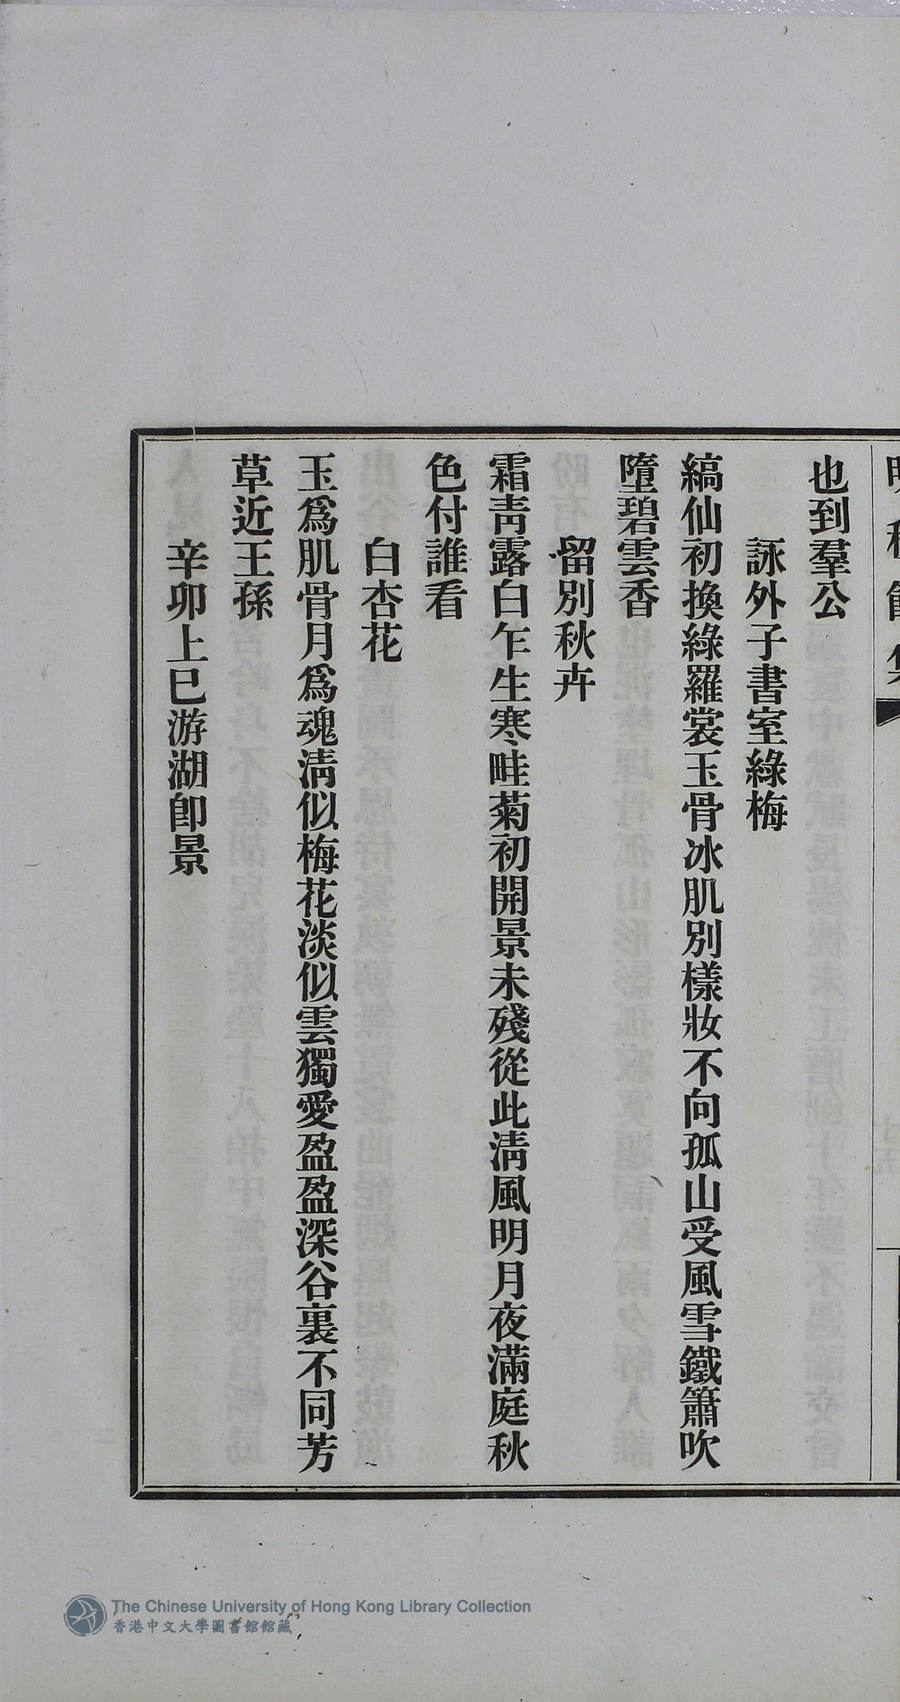 也到羣公
詠外子書室綠梅
縞仙初換綠羅裳玉骨冰肌別樣妝不向孤山受風雪鐵簫吹
墮碧雲香
留別秋卉
霜靑露白乍生寒畦菊初開景未殘從此淸風明月夜滿庭秋
色付誰看
白杏花
玉爲肌骨月爲魂淸似梅花淡似雲獨愛盈盈深谷裏不同芳
草近王孫
辛卯上巳游湖卽景
The Chinese University of Hong Kong Library Collection
香港中文大學圖書館館藏